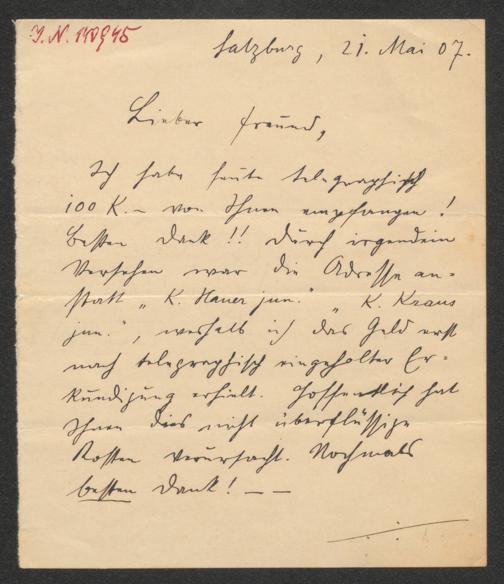 I.N. 140945
Salzburg, 21. Mai 07.
Lieber Freund,
Ich habe heute telegraphisch
100 K.– von Ihnen empfangen!
Besten Dank!! Durch irgendein
Versehen war die Adresse an-
statt „K. Hauer jun." „K. Kraus
jun.", weshalb ich das Geld erst
nach telegraphisch eingeholter Er-
kundigung erhielt. Hoffentlich hat
Ihnen dies nicht überflüssige
Kosten verursacht. Nochmals
besten Dank! – –